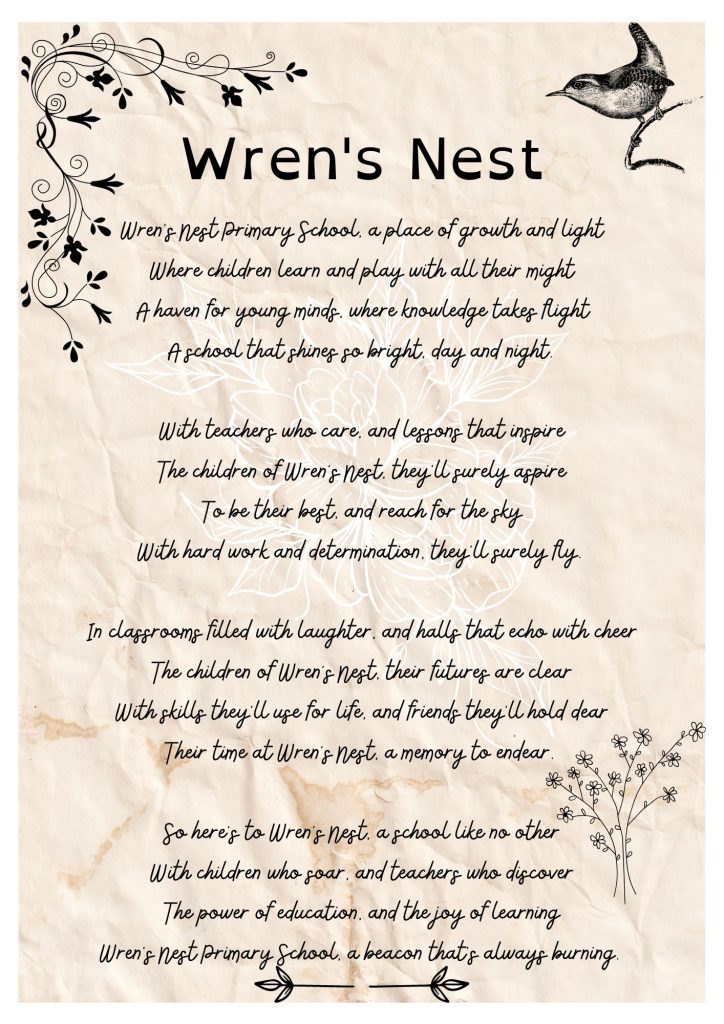 Wren's Nest
Wren's Nest Primary School, a place of growth and light
Where children learn and play with all their might
A haven for young minds, where knowledge takes flight
A school that shines so bright, day and night.
With teachers who care, and lessons that inspire
The children of Wren's Nest, they'll surely aspire
To be their best, and reach for the sky
With hard work and determination, they'll surely fly.
In classrooms filled with laughter, and halls that echo with cheer
The children of Wren's Nest, their futures are clear
With skills they'll use for life, and friends they'll hold dear
Their time at Wren's Nest, a memory to endear.
So here's to Wren's Nest, a school like no other
With children who soar, and teachers who discover
The power of education, and the joy of learning
Wren's Nest Primary School, a beacon that's always burning.